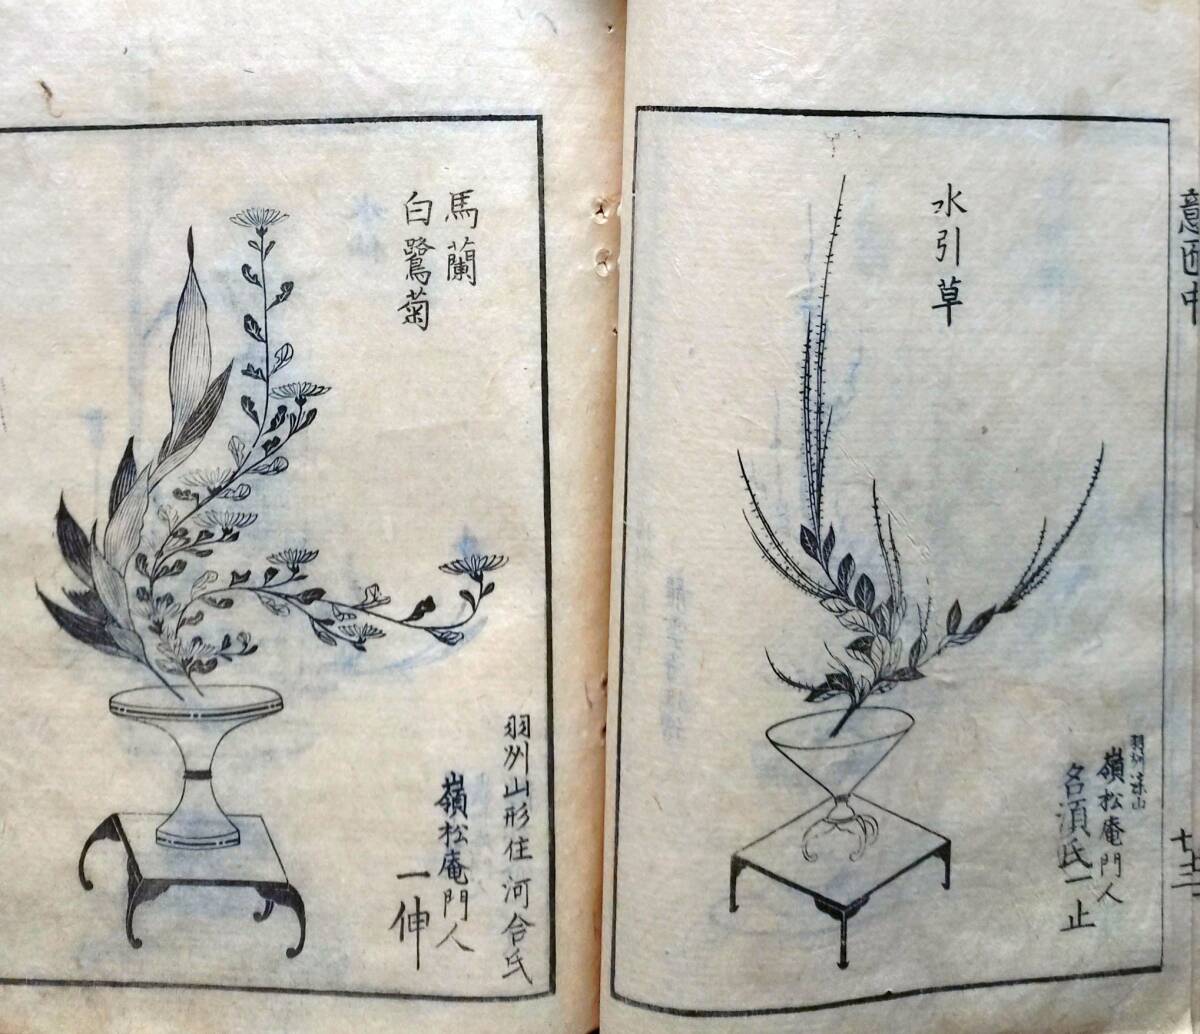 水引草
羽州漆山
嶺松庵門人
名須氏一止
馬蘭
白鷺菊
羽州山形住河合氏
嶺松庵門人
一伸